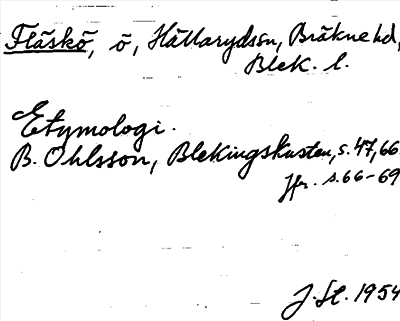 Fläskö, ö, Hällarydssn, Bräkne hd,
Blek. l.
Etymologi.
B. Ohlsson, Blekingskusten, s. 47, 66
Jfr. s. 66-69
J. St. 1954